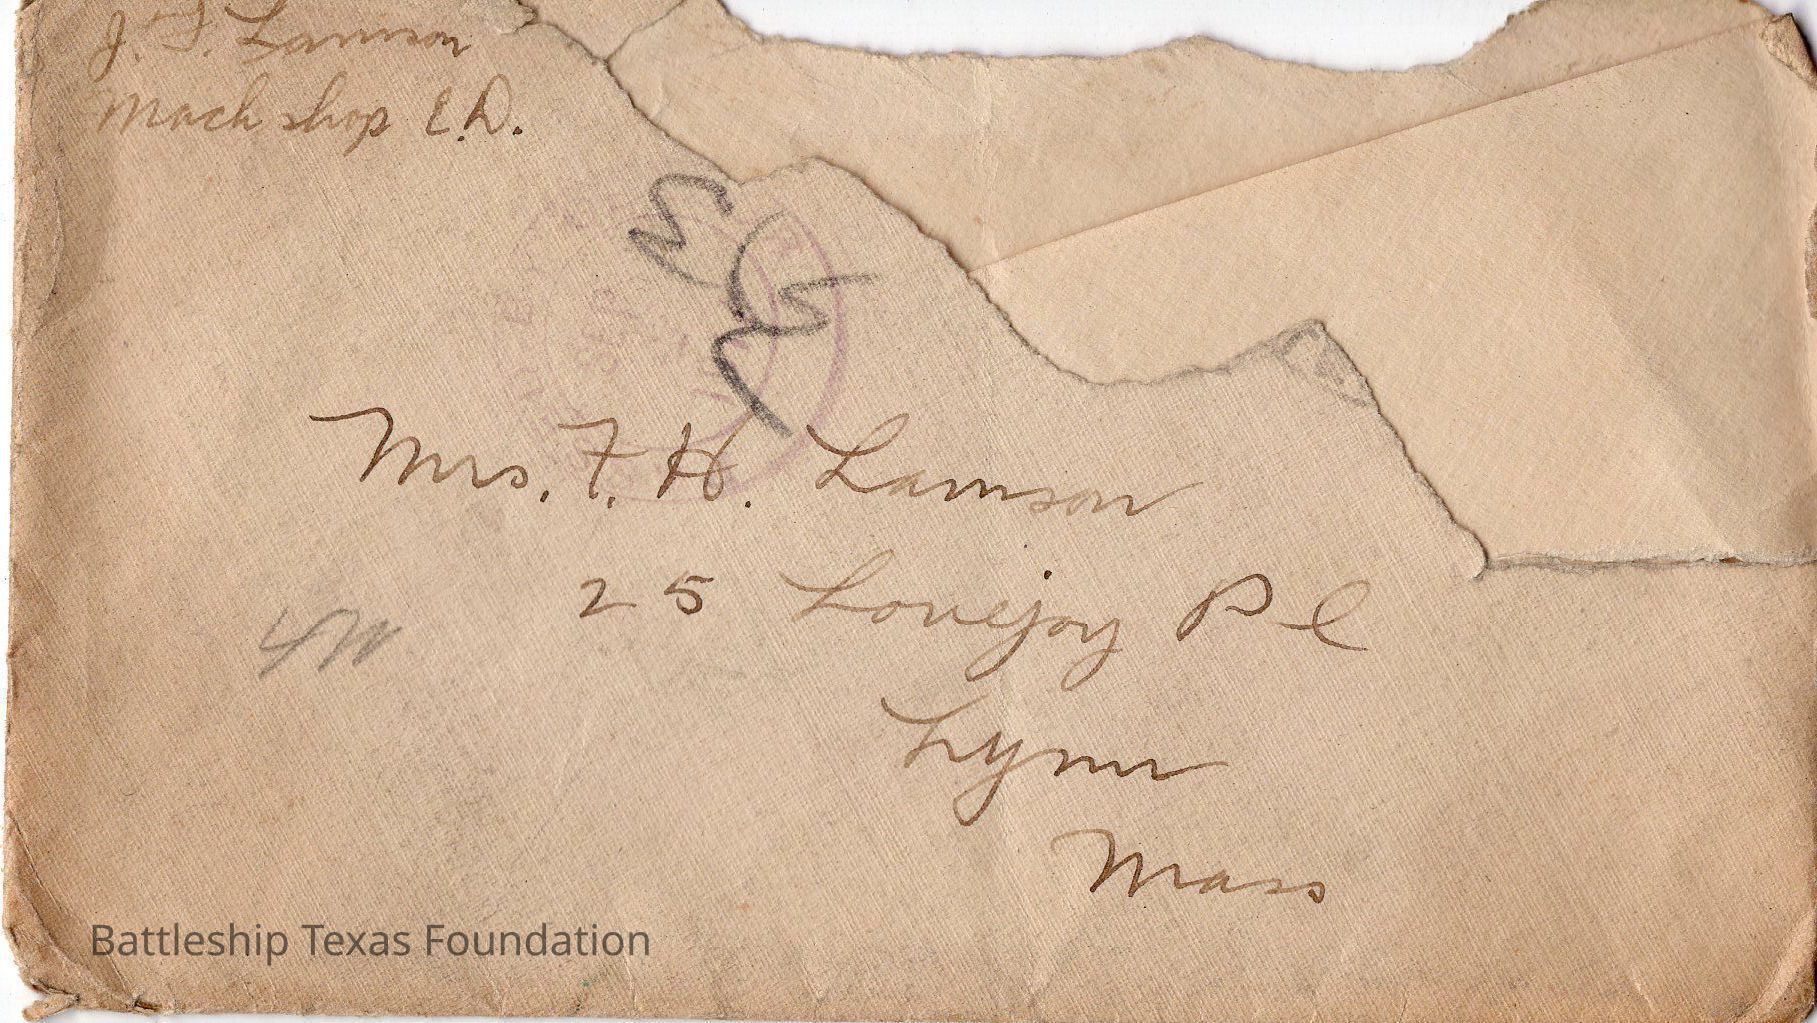 J. F. Lamson
Mach shop E.D.
Mrs. F. H. Lamson
25 Lovejoy Pl
Lynn
Mass
Battleship Texas Foundation